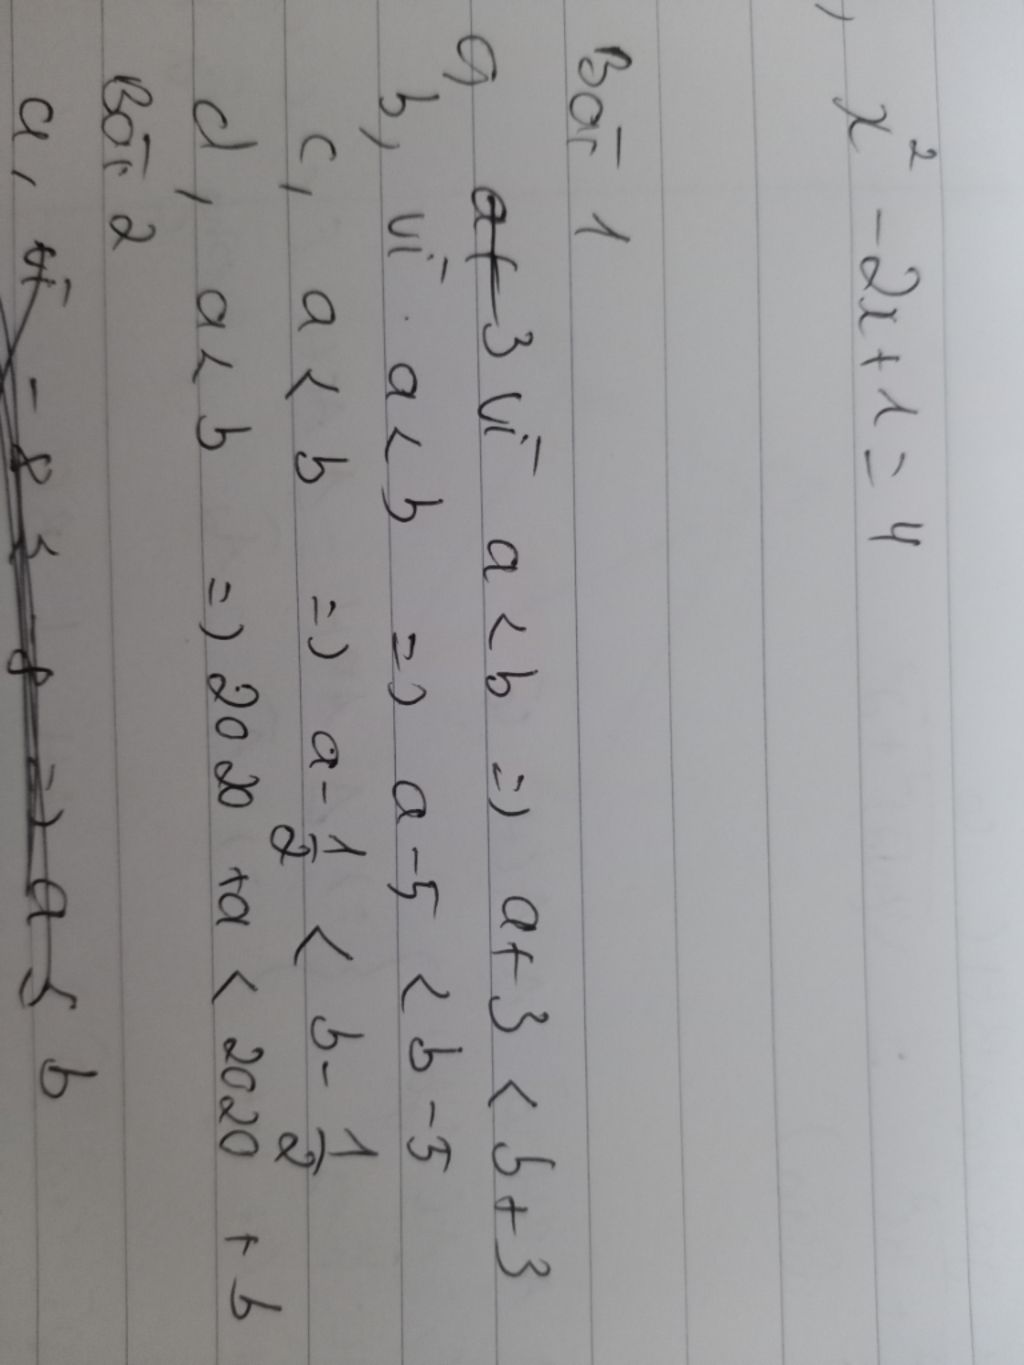 , x² - 2x + 1 = 4
Bài 1
a, a+3 vì a < b => a + 3 < b + 3
b, vì a < b => a - 5 < b - 5
c, a < b => a - 1/2 < b - 1/2
d, a < b => 2020 + a < 2020 + b
Bài 2
a, vì => a ≤ b